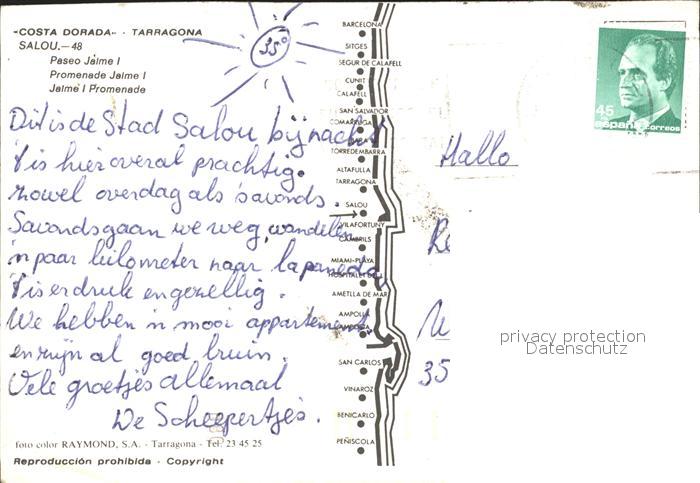 «COSTA DORADA» - TARRAGONA
SALOU.-48
Paseo Jaime I
Promenade Jaime I
Jaime I Promenade
35°
Dit is de Stad Salou bij nacht
't is hier overal prachtig.
zowel overdag als 's avonds.
Savonds gaan we weg, wandelen
'n paar kilometer naar lapaneda
't is er druk en gezellig.
We hebben 'n mooi appartement
en zijn al goed bruin.
Vele groetjes allemaal
De Scheepertjes.
foto color RAYMOND, S.A. - Tarragona - Tel. 23 45 25
Reproducción prohibida - Copyright
BARCELONA
SITGES
SEGUR DE CALAFELL
CUNIT
CALAFELL
SAN SALVADOR
COMARRUGA
TORREDEMBARRA
ALTAFULLA
TARRAGONA
SALOU
VILAFORTUNY
CAMBRILS
MIAMI-PLAYA
AMETLLA DE MAR
AMPOLLA
SAN CARLOS
VINAROZ
BENICARLO
PEÑISCOLA
45
españa correos
Hallo
35
privacy protection
Datenschutz